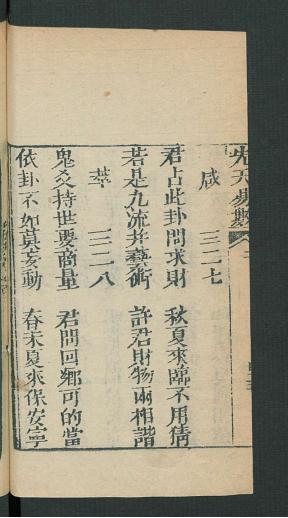 先天易數
咸 三二七
君占此卦問求財 秋夏來臨不用猜
若是九流并藝術 許君財物兩相諧
萃 三二八
鬼爻持世要商量 君問回鄉可的當
依卦不如莫妄動 春末夏來保安寧